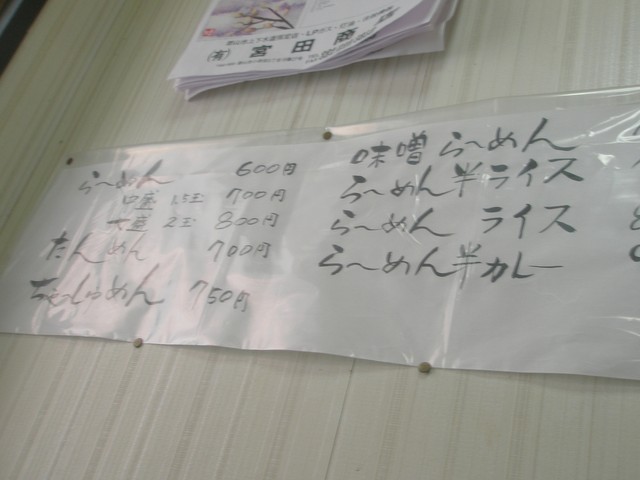 (有) 宮田商
らーめん 600円
中盛 1.5玉 700円
大盛 2玉 800円
たんめん 700円
ちゃーしゅーめん 750円
味噌らーめん
らーめん半ライス
らーめん ライス
らーめん半カレー